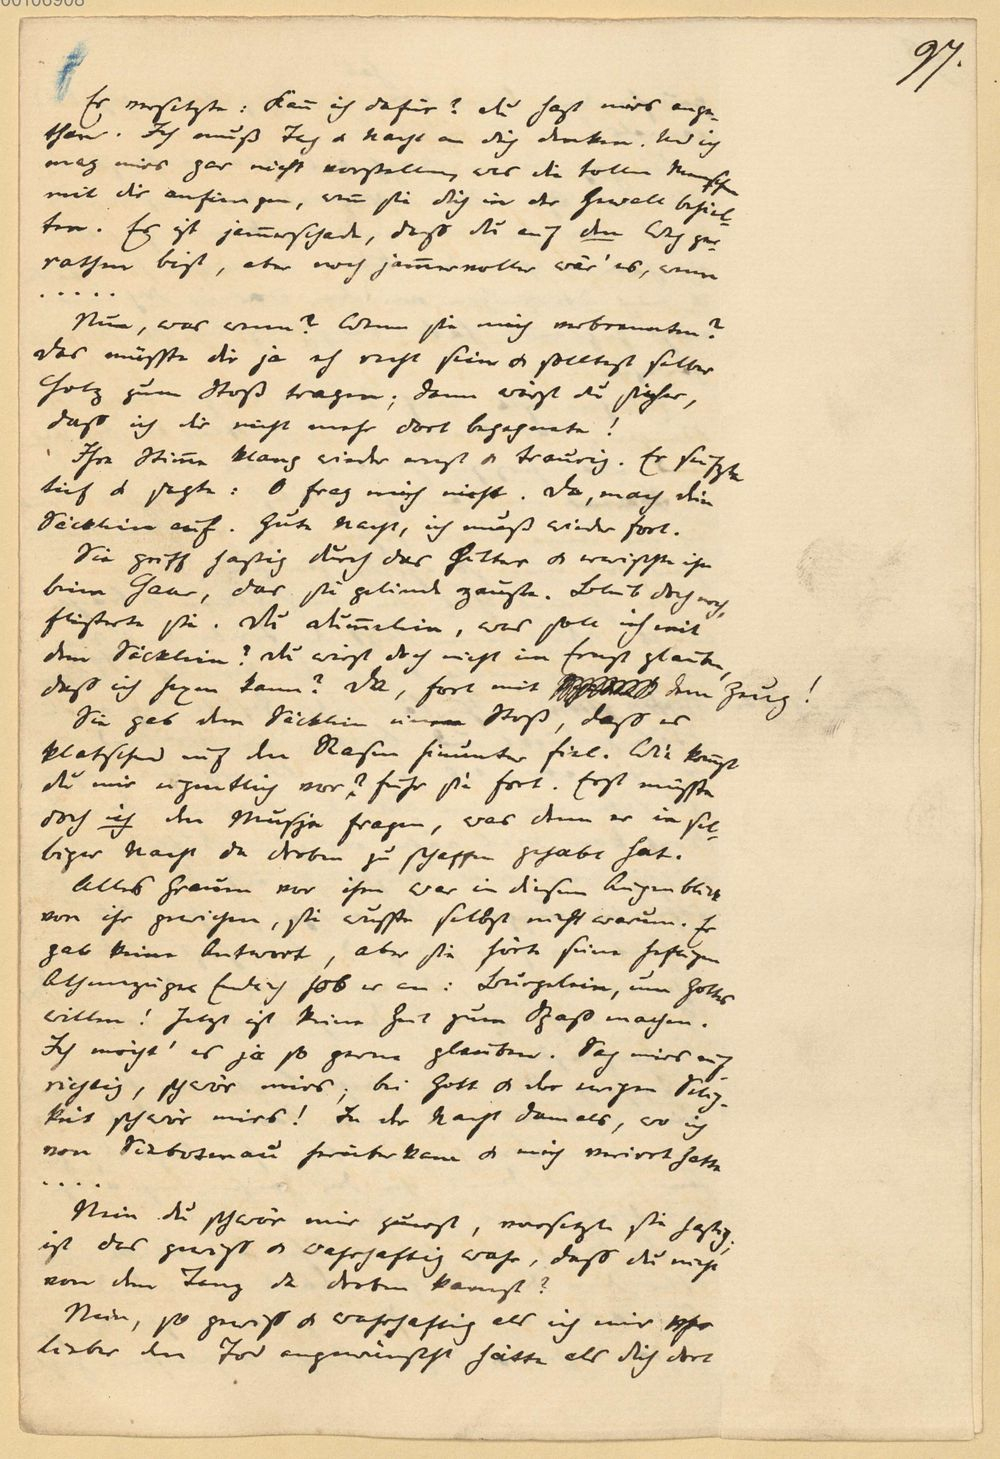 00106908
97.
Er versetzte: Kan̄ ich dafür? Du hast mirs ange-
than. Ich muß Tag & Nacht an dich denken. Und ich
mag mirs gar nicht vorstellen, was die tollen Menschen
mit dir anfiengen, wen̄ sie dich in der Gewalt behiel-
ten. Es ist jam̄erschade, daß du auf den Weg ge-
rathen bist, aber noch jam̄ervoller wär' es, wenn
. . . . .
Nun, was wenn? Wenn sie mich verbrennten?
Das müsste dir ja eh recht sein & solltest selber
Holz zum Stoß tragen; dann wärst du sicher,
daß ich dir nicht mehr dort begegnete!
Ihre Stim̄e klang wieder ernst & traurig. Er seufzte
tief & sagte: O frag mich nicht. Da, mach dein
Säcklein auf. Gute Nacht, ich muß wieder fort.
Sie griff hastig durch das Gitter & erwischte ihn
beim Haar, das sie gelinde zauste. Bleib doch noch,
flüsterte sie. Du Dum̄elein, was soll ich mit
dem Säcklein? Du wirst doch nicht im Ernst glauben,
daß ich hexen kann? Da, fort mit dem Zeug!
Sie gab dem Säcklein einen Stoß, daß es
klatschend auf den Rasen hinunter fiel. Wie kom̄st
du mir eigentlich vor? fuhr sie fort. Erst müsste
doch ich den Musje fragen, was denn er in sel-
biger Nacht da droben zu schaffen gehabt hat.
Alles Grauen vor ihm war in diesem Augenblick
von ihr gewichen, sie wusste selbst nicht warum. Er
gab keine Antwort, aber sie hörte seine heftigen
Athemzüge. Endlich hob er an: Burgelein, um Gottes
willen! Jetzt ist keine Zeit zum Spaß machen.
Ich möcht' es ja so gerne glauben. Sag mirs auf-
richtig, schwör mirs, bei Gott & der ewigen Selig-
keit schwör mirs! In der Nacht damals, wo ich
von herüberkam & mich verirrt hatte
. . . .
Nein du schwör mir zuerst, versetzte sie hastig;
ist das gewiß & wahrhaftig wahr, daß du nicht
von dem Tanz da droben kamst?
Nein, so gewiß & wahrhaftig als ich mir
lieber den Tod angewünscht hätte als dich dort